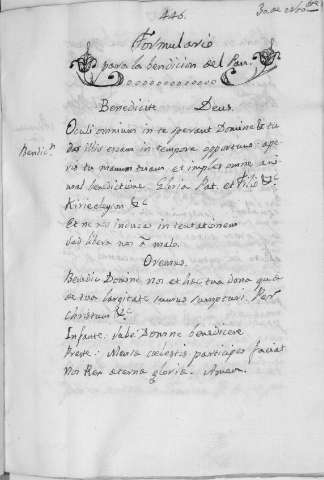 446.
30 de
Formulario
para la bendicion del Pan.
Benedicite Deus.
Oculi omnium in te sperant Domine & tu
Bendic.n
das illis escam in tempore opportuno: ape
ris tu manum tuam et imples omne ani
mal benedictione Gloria Pat. et Filio &c
Kirie eleyson &c
Et ne nos inducas in tentationem
sed libera nos à malo.
Oremus.
Benedic Domine nos et haec tua dona quae
de tua largitate sumus sumpturi. Per
Christum &c
Infante: Jube Domne benedicere
Preste: Mensae coelestis participes faciat
nos Rex aeternae gloriae. Amen.